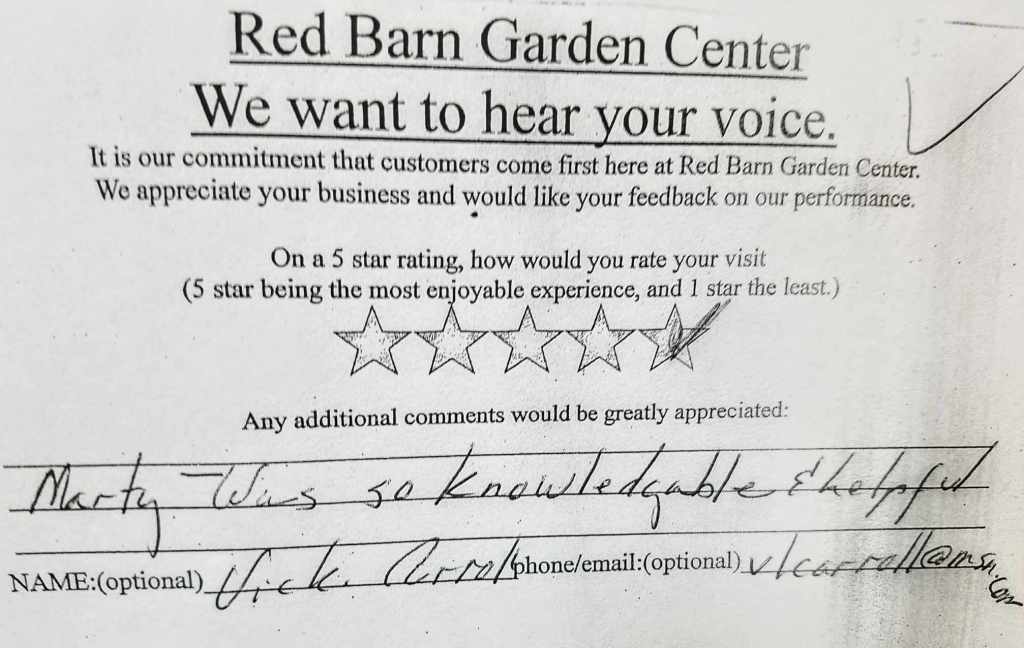 Red Barn Garden Center
We want to hear your voice.
It is our commitment that customers come first here at Red Barn Garden Center.
We appreciate your business and would like your feedback on our performance.
On a 5 star rating, how would you rate your visit
(5 star being the most enjoyable experience, and 1 star the least.)
Any additional comments would be greatly appreciated:
Marty Was so knowledgable & helpful
NAME:(optional) Vick. Carroll phone/email:(optional) vlcarroll@msn.com